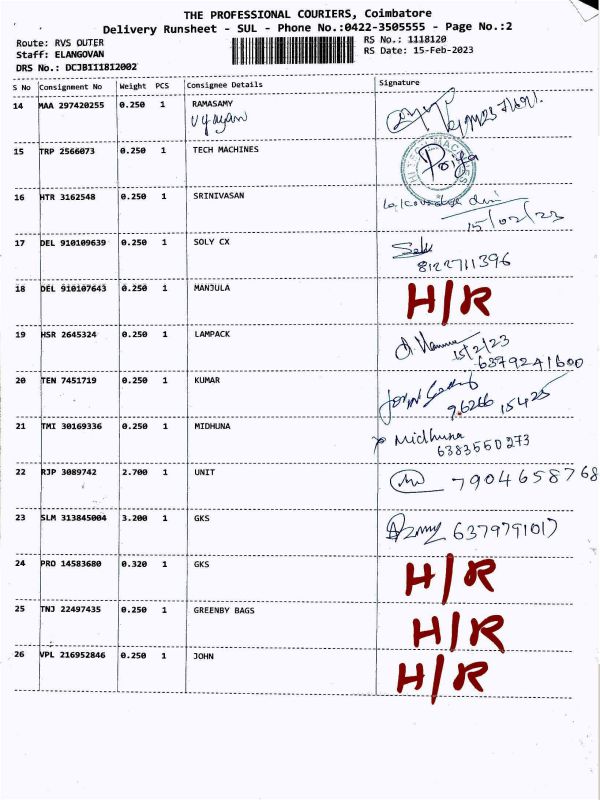 THE PROFESSIONAL COURIERS, Coimbatore
Delivery Runsheet - SUL - Phone No.:0422-3505555 - Page No.:2
Route: RVS OUTER RS No.: 1118120
Staff: ELANGOVAN RS Date: 15-Feb-2023
DRS No.: DCJB111812002
S No Consignment No Weight PCS Consignee Details Signature
14 MAA 297420255 0.250 1 RAMASAMY
15 TRP 2566073 0.250 1 TECH MACHINES
16 HTR 3162548 0.250 1 SRINIVASAN
15/02/23
17 DEL 910109639 0.250 1 SOLY CX
8122711396
18 DEL 910107643 0.250 1 MANJULA H/R
19 HSR 2645324 0.250 1 LAMPACK
15/2/23
6379241600
20 TEN 7451719 0.250 1 KUMAR
96266 15425
21 TMI 30169336 0.250 1 MIDHUNA Midhuna
6383550273
22 RJP 3089742 2.700 1 UNIT 7904658768
23 SLM 313845004 3.200 1 GKS 6379791017
24 PRO 14583680 0.320 1 GKS H/R
25 TNJ 22497435 0.250 1 GREENBY BAGS H/R
26 VPL 216952846 0.250 1 JOHN H/R